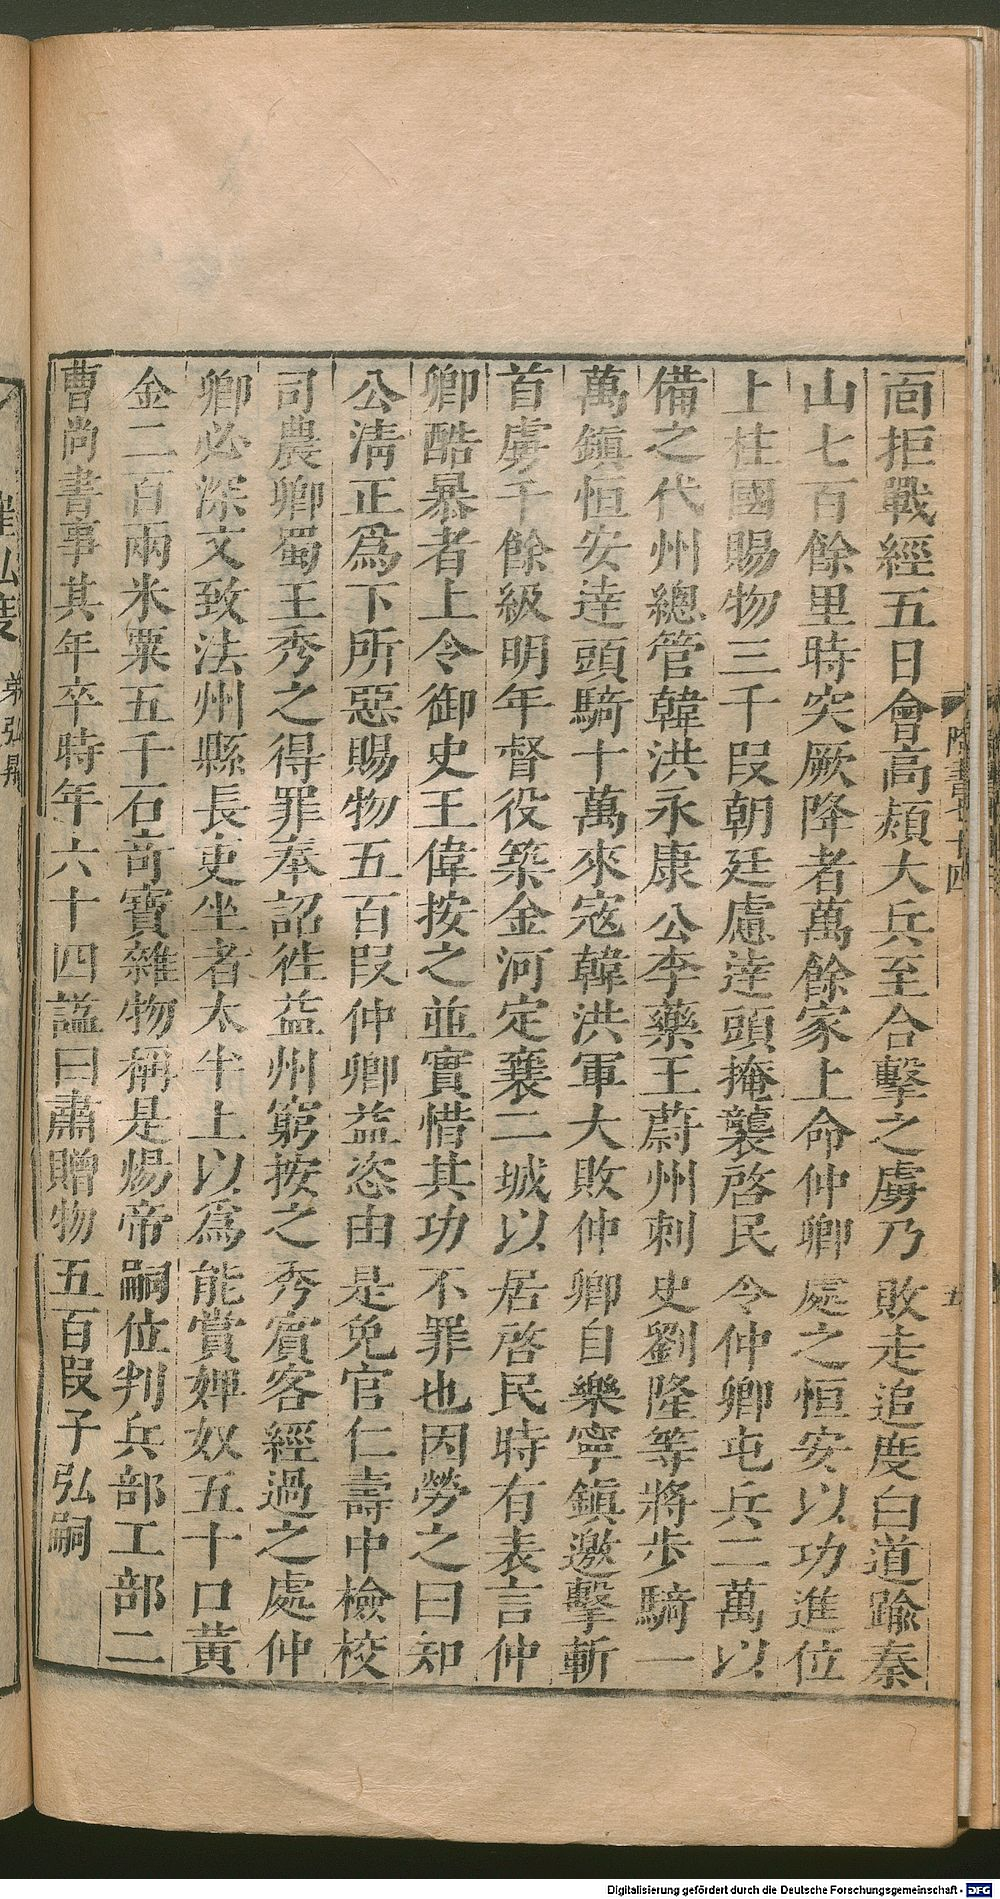 面拒戰經五日會高熲大兵至合擊之虜乃敗走追度白道踰秦
山七百餘里時突厥降者萬餘家上命仲卿處之恒安以功進位
上柱國賜物三千段朝廷慮達頭掩襲啓民令仲卿屯兵二萬以
備之代州總管韓洪永康公李藥王蔚州刺史劉隆等將步騎一
萬鎮恒安達頭騎十萬來寇韓洪軍大敗仲卿自樂寧鎮邀擊斬
首虜千餘級明年督役築金河定襄二城以居啓民時有表言仲
卿酷暴者上令御史王偉按之並實惜其功不罪也因勞之曰知
公清正爲下所惡賜物五百段仲卿益恣由是免官仁壽中檢校
司農卿蜀王秀之得罪奉詔往益州窮按之秀賓客經過之處仲
卿必深文致法州縣長吏坐者太半上以爲能賞婢奴五十口黃
金二百兩米粟五千石奇寶雜物稱是煬帝嗣位判兵部工部二
曹尚書事其年卒時年六十四謚曰肅贈物五百段子弘嗣
弟弘昇
Digitalisierung gefördert durch die Deutsche Forschungsgemeinschaft - DFG